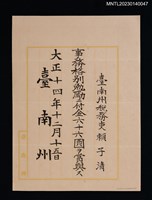 MNTL20230140047
臺南州稅務吏 賴子清
事務格別勉勵ニ付金六十六圓ヲ賞與ス
大正十四年十二月十五日
臺南州